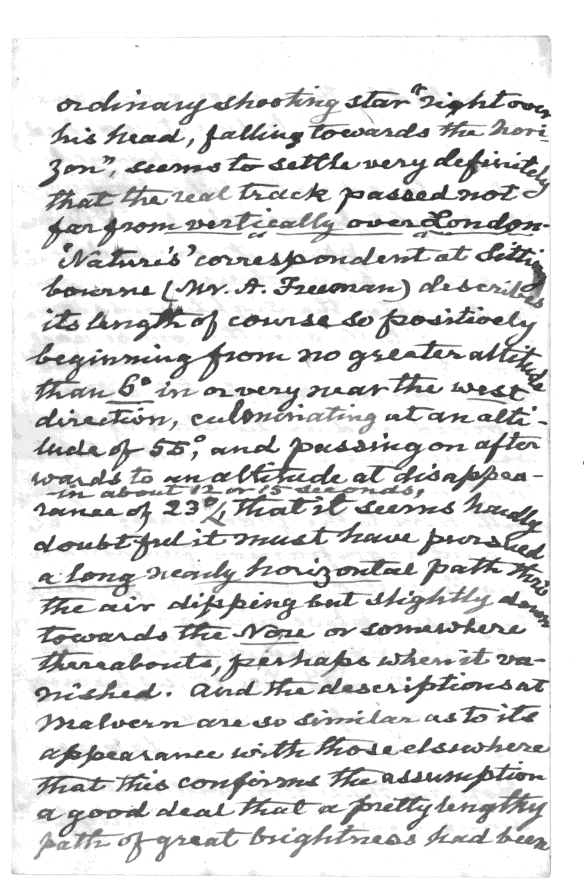 ordinary shooting star "right over
his head, falling towards the hori-
zon", seems to settle very definitely
that the real track passed not
far from vertically over London.
'Nature's' correspondent at Sitting
bourne (Mr. A. Freeman) describes
its length of course so positively
beginning from no greater altitude
than 6° in or very near the west
direction, culminating at an alti-
tude of 55°, and passing on after
wards to an altitude at disappea-
in about 12 or 15 seconds,
rance of 23°, that it seems hardly
doubtful it must have pursued
a long nearly horizontal path thro'
the air dipping but slightly down
towards the Nore or somewhere
thereabouts, perhaps when it va-
nished. And the descriptions at
Malvern are so similar as to its
appearance with those elsewhere
that this confirms the assumption
a good deal that a pretty lengthy
path of great brightness had been